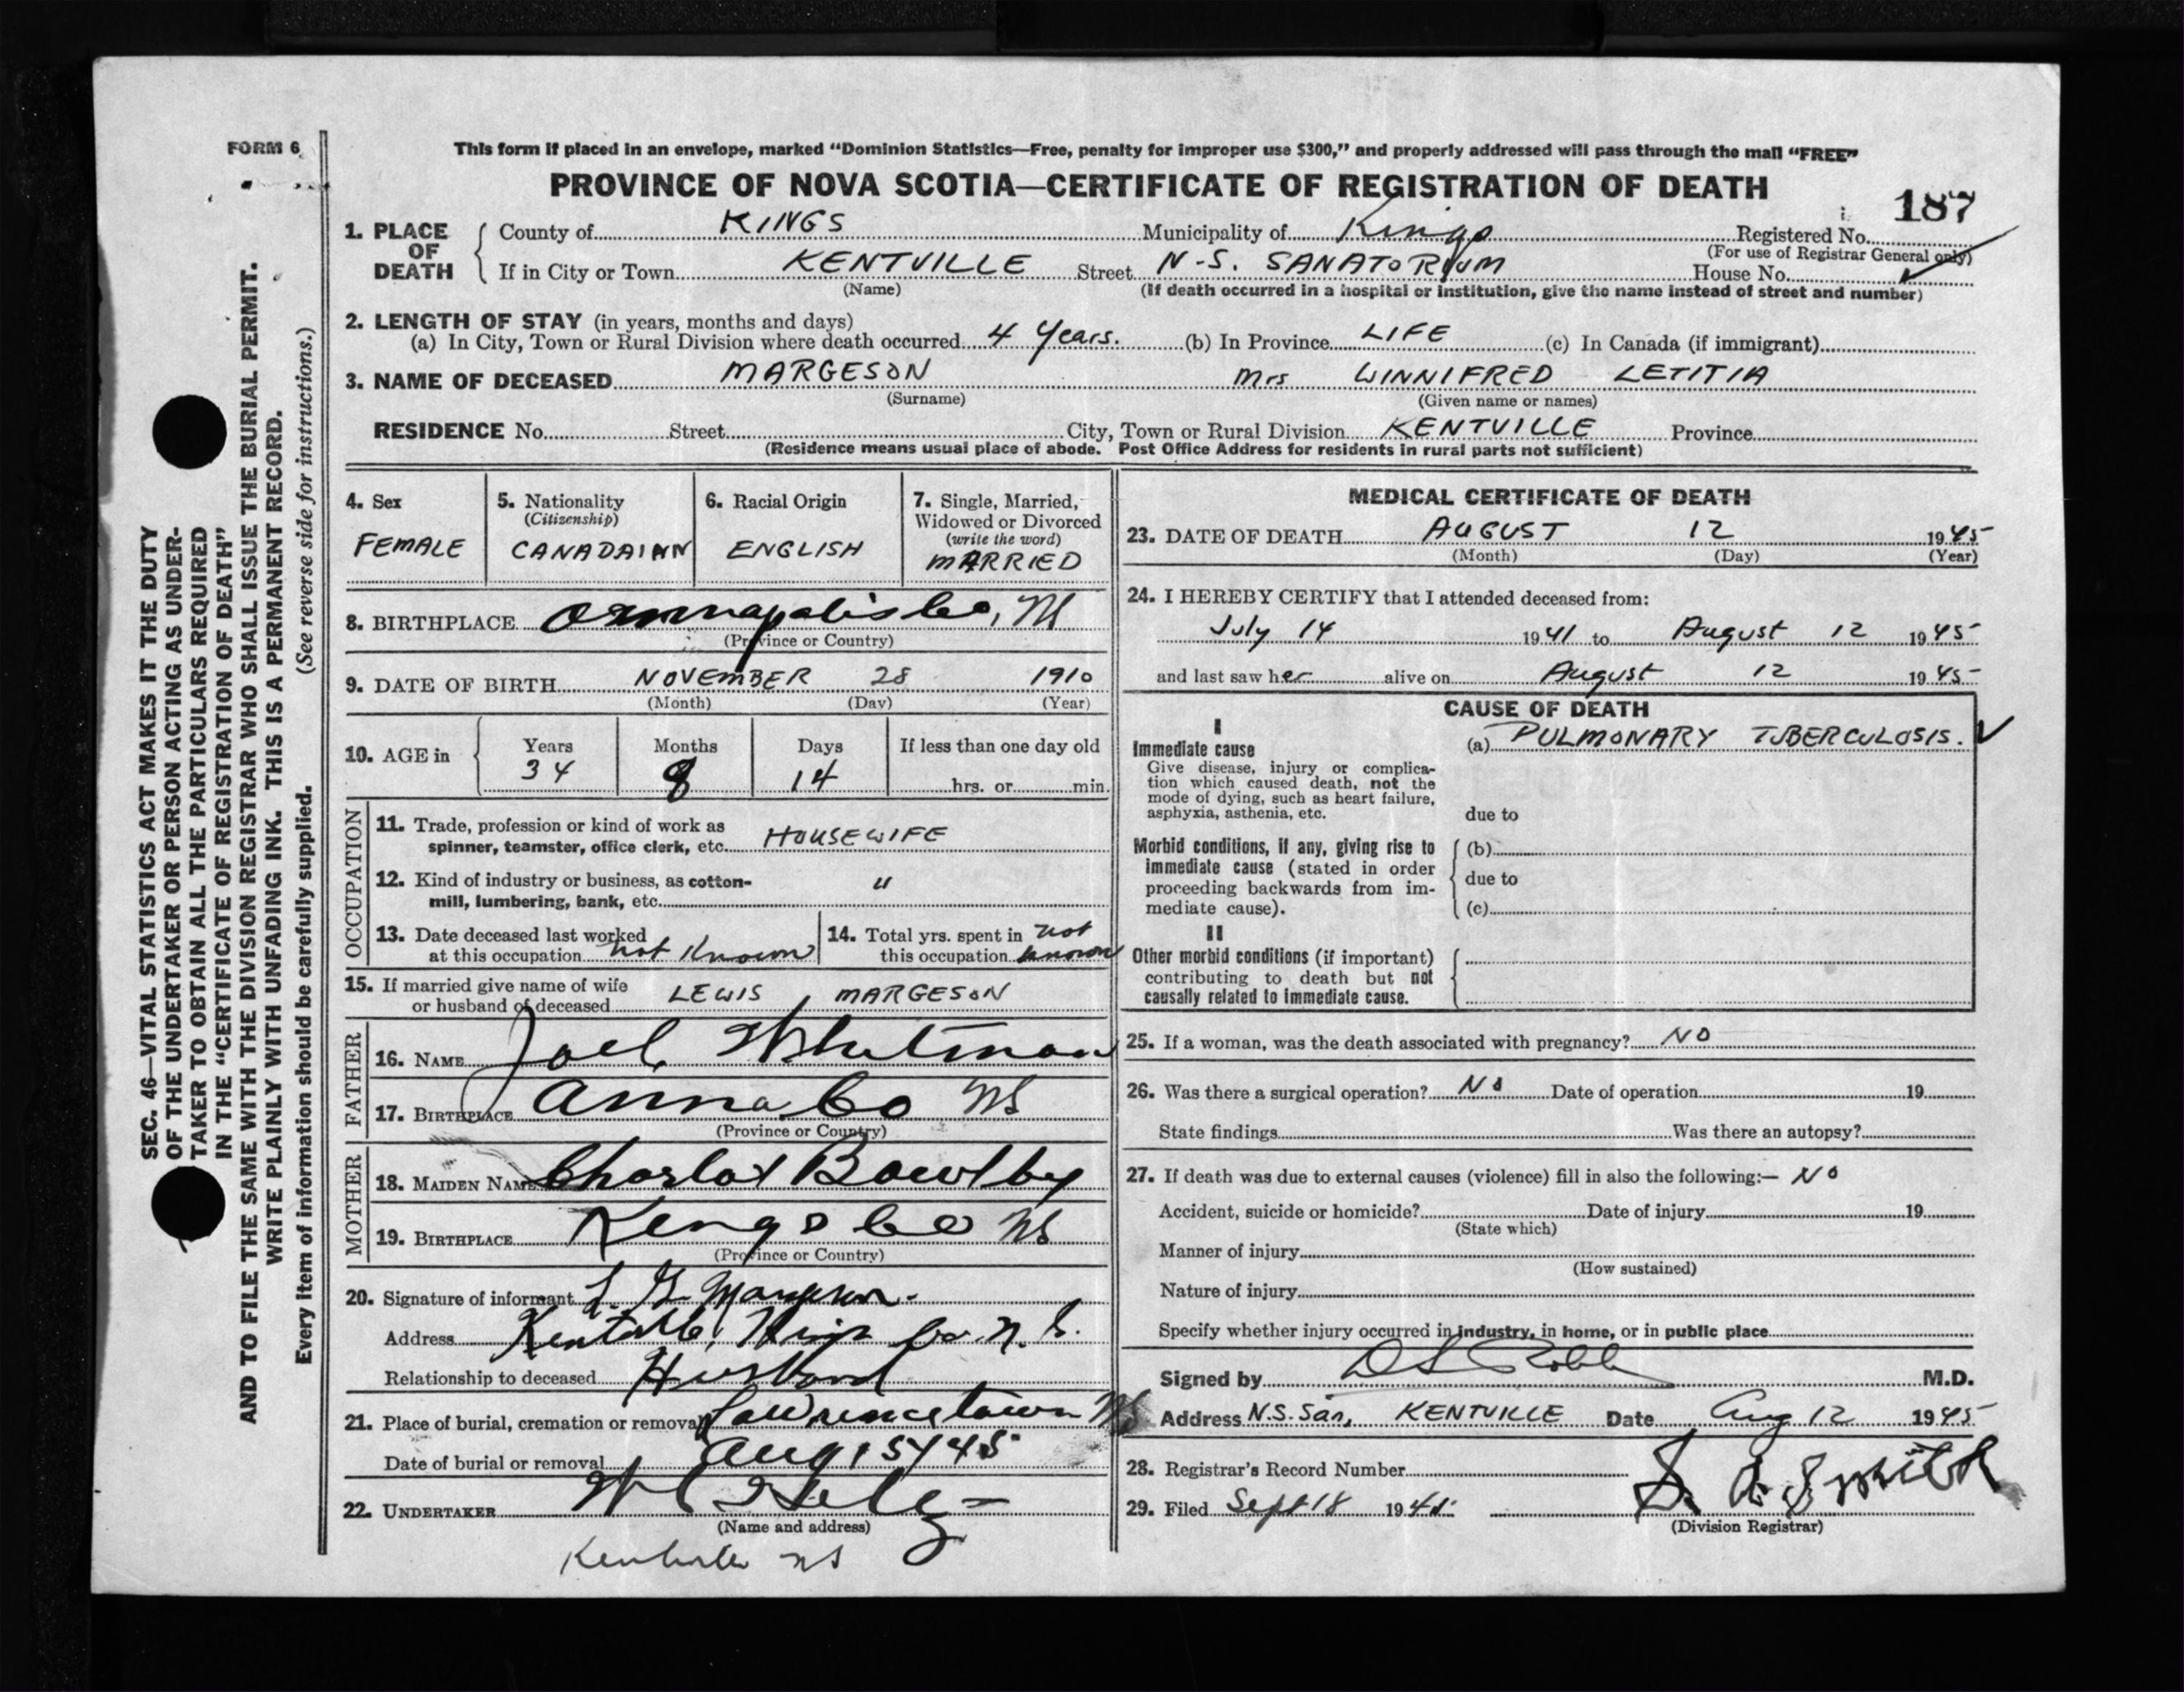 FORM 6
This form if placed in an envelope, marked “Dominion Statistics—Free, penalty for improper use $300,” and properly addressed will pass through the mail “FREE”
PROVINCE OF NOVA SCOTIA—CERTIFICATE OF REGISTRATION OF DEATH
187
1. PLACE OF DEATH
County of KINGS Municipality of Kings Registered No.
(For use of Registrar General only)
If in City or Town KENTVILLE Street N.S. SANATORIUM House No.
(Name) (If death occurred in a hospital or institution, give the name instead of street and number)
2. LENGTH OF STAY (in years, months and days)
(a) In City, Town or Rural Division where death occurred 4 Years. (b) In Province LIFE (c) In Canada (if immigrant)
3. NAME OF DECEASED MARGESON Mrs WINNIFRED LETITIA
(Surname) (Given name or names)
RESIDENCE No. Street City, Town or Rural Division KENTVILLE Province
(Residence means usual place of abode. Post Office Address for residents in rural parts not sufficient)
4. Sex
FEMALE
5. Nationality
(Citizenship)
CANADAIAN
6. Racial Origin
ENGLISH
7. Single, Married,
Widowed or Divorced
(write the word)
MARRIED
8. BIRTHPLACE Annapolis Co, NS
(Province or Country)
9. DATE OF BIRTH NOVEMBER 28 1910
(Month) (Day) (Year)
10. AGE in
Years Months Days If less than one day old
34 8 14 hrs. or min.
OCCUPATION
11. Trade, profession or kind of work as
spinner, teamster, office clerk, etc. HOUSEWIFE
12. Kind of industry or business, as cotton-
mill, lumbering, bank, etc. "
13. Date deceased last worked
at this occupation not Known
14. Total yrs. spent in not
this occupation known
15. If married give name of wife
or husband of deceased LEWIS MARGESON
FATHER
16. NAME Joel Whitman
17. BIRTHPLACE Anna Co NS
(Province or Country)
MOTHER
18. MAIDEN NAME Charlot Bowlby
19. BIRTHPLACE Kings Co NS
(Province or Country)
20. Signature of informant L. G. Margeson.
Address Kentville, Kings Co. N. S.
Relationship to deceased Husband
21. Place of burial, cremation or removal Lawrencetown NS
Date of burial or removal Aug 15/45
22. UNDERTAKER
(Name and address)
Kentville NS
MEDICAL CERTIFICATE OF DEATH
23. DATE OF DEATH AUGUST 12 1945
(Month) (Day) (Year)
24. I HEREBY CERTIFY that I attended deceased from:
July 14 1941 to August 12 1945
and last saw her alive on August 12 1945
CAUSE OF DEATH
I
Immediate cause (a) PULMONARY TUBERCULOSIS.
Give disease, injury or complica-
tion which caused death, not the
mode of dying, such as heart failure,
asphyxia, asthenia, etc. due to
Morbid conditions, if any, giving rise to (b)
immediate cause (stated in order
proceeding backwards from im- due to
mediate cause). (c)
II
Other morbid conditions (if important)
contributing to death but not
causally related to immediate cause.
25. If a woman, was the death associated with pregnancy? NO
26. Was there a surgical operation? NO Date of operation 19
State findings Was there an autopsy?
27. If death was due to external causes (violence) fill in also the following:— NO
Accident, suicide or homicide? Date of injury 19
(State which)
Manner of injury
(How sustained)
Nature of injury
Specify whether injury occurred in industry, in home, or in public place
Signed by D S Robb M.D.
Address N.S. San, KENTVILLE Date Aug 12 1945
28. Registrar's Record Number
29. Filed Sept 18 1945
(Division Registrar)
SEC. 46—VITAL STATISTICS ACT MAKES IT THE DUTY
OF THE UNDERTAKER OR PERSON ACTING AS UNDER-
TAKER TO OBTAIN ALL THE PARTICULARS REQUIRED
IN THE “CERTIFICATE OF REGISTRATION OF DEATH”
AND TO FILE THE SAME WITH THE DIVISION REGISTRAR WHO SHALL ISSUE THE BURIAL PERMIT.
WRITE PLAINLY WITH UNFADING INK. THIS IS A PERMANENT RECORD.
Every item of information should be carefully supplied. (See reverse side for instructions.)